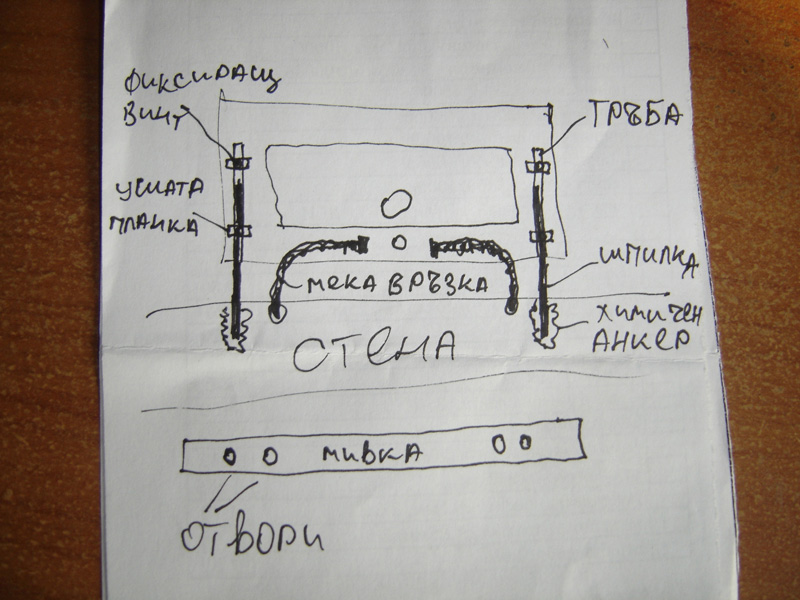 ФИКСИРАЩ
ВИНТ
ТРЪБА
УШАТА
ПЛАНКА
МЕКА ВРЪЗКА
ШПИЛКА
ХИМИЧЕН
АНКЕР
СТЕНА
МИВКА
ОТВОРИ